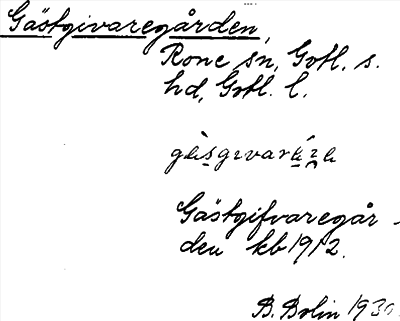 Gästgivaregården,
Rone sn, Gotl. s.
hd, Gotl. l.
Gästgifvaregår-
den kb 1912.
B. Bolin 1930